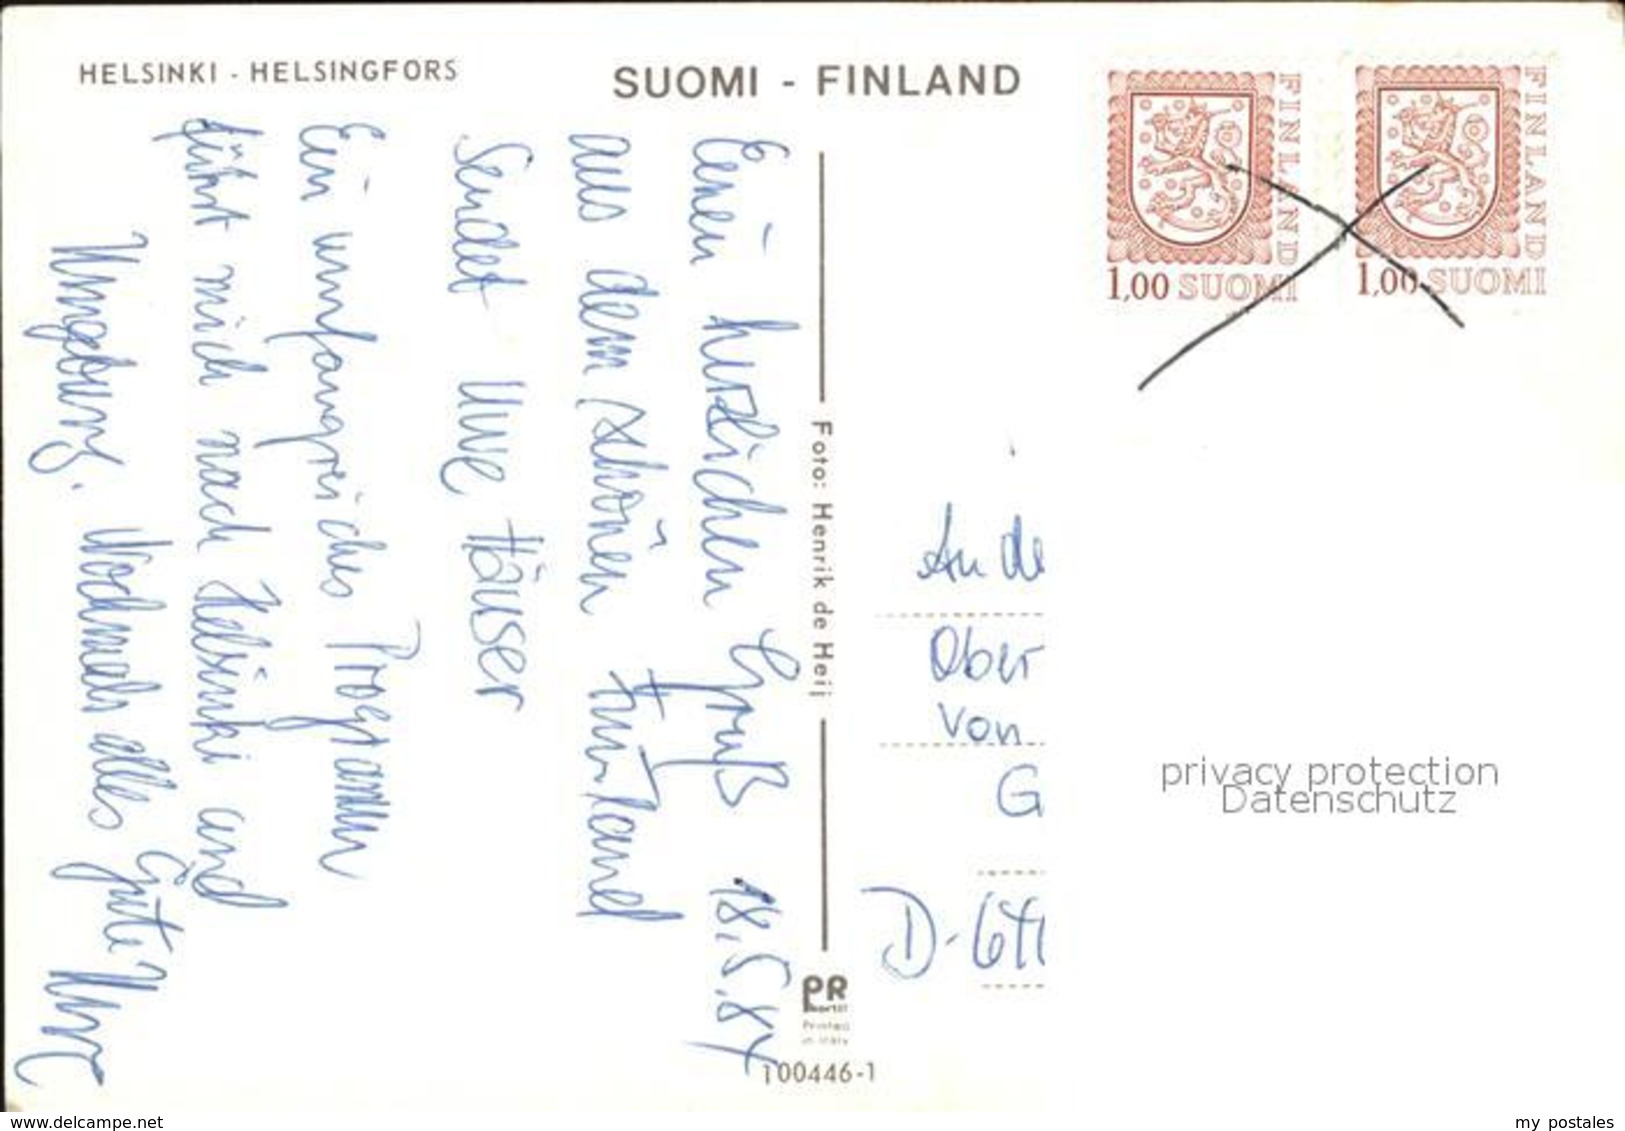 HELSINKI - HELSINGFORS
SUOMI - FINLAND
FINLAND
1,00 SUOMI
FINLAND
1,00 SUOMI
Einen herzlichen Gruß 18.5.84
aus dem schönen Finnland
Sendet Uwe Häuser
Ein umfangreiches Programm
führt mich nach Helsinki und
Umgebung. Nochmals alles Gute! Uwe
Foto: Henrik de Heij
PR
Printed
in Italy
100446-1
An de
Ober
von
G
D-641
privacy protection
Datenschutz
www.delcampe.net
my postales